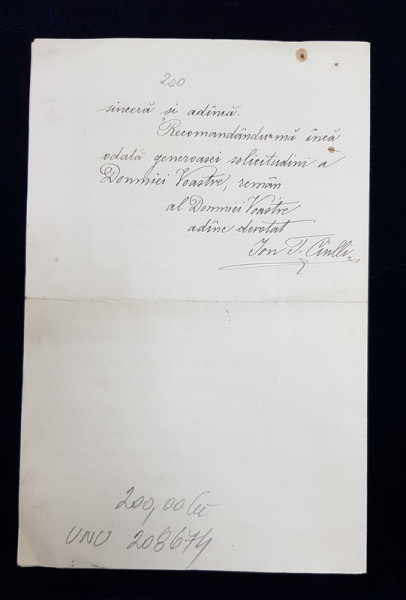 200
sinceră și adîncă.
Recomandându-mă încă
odată generoasei solicitudini a
Domniei Voastre, remân
al Domniei Voastre
adînc devotat
Ion T.
200,00 lei
UNU 208674